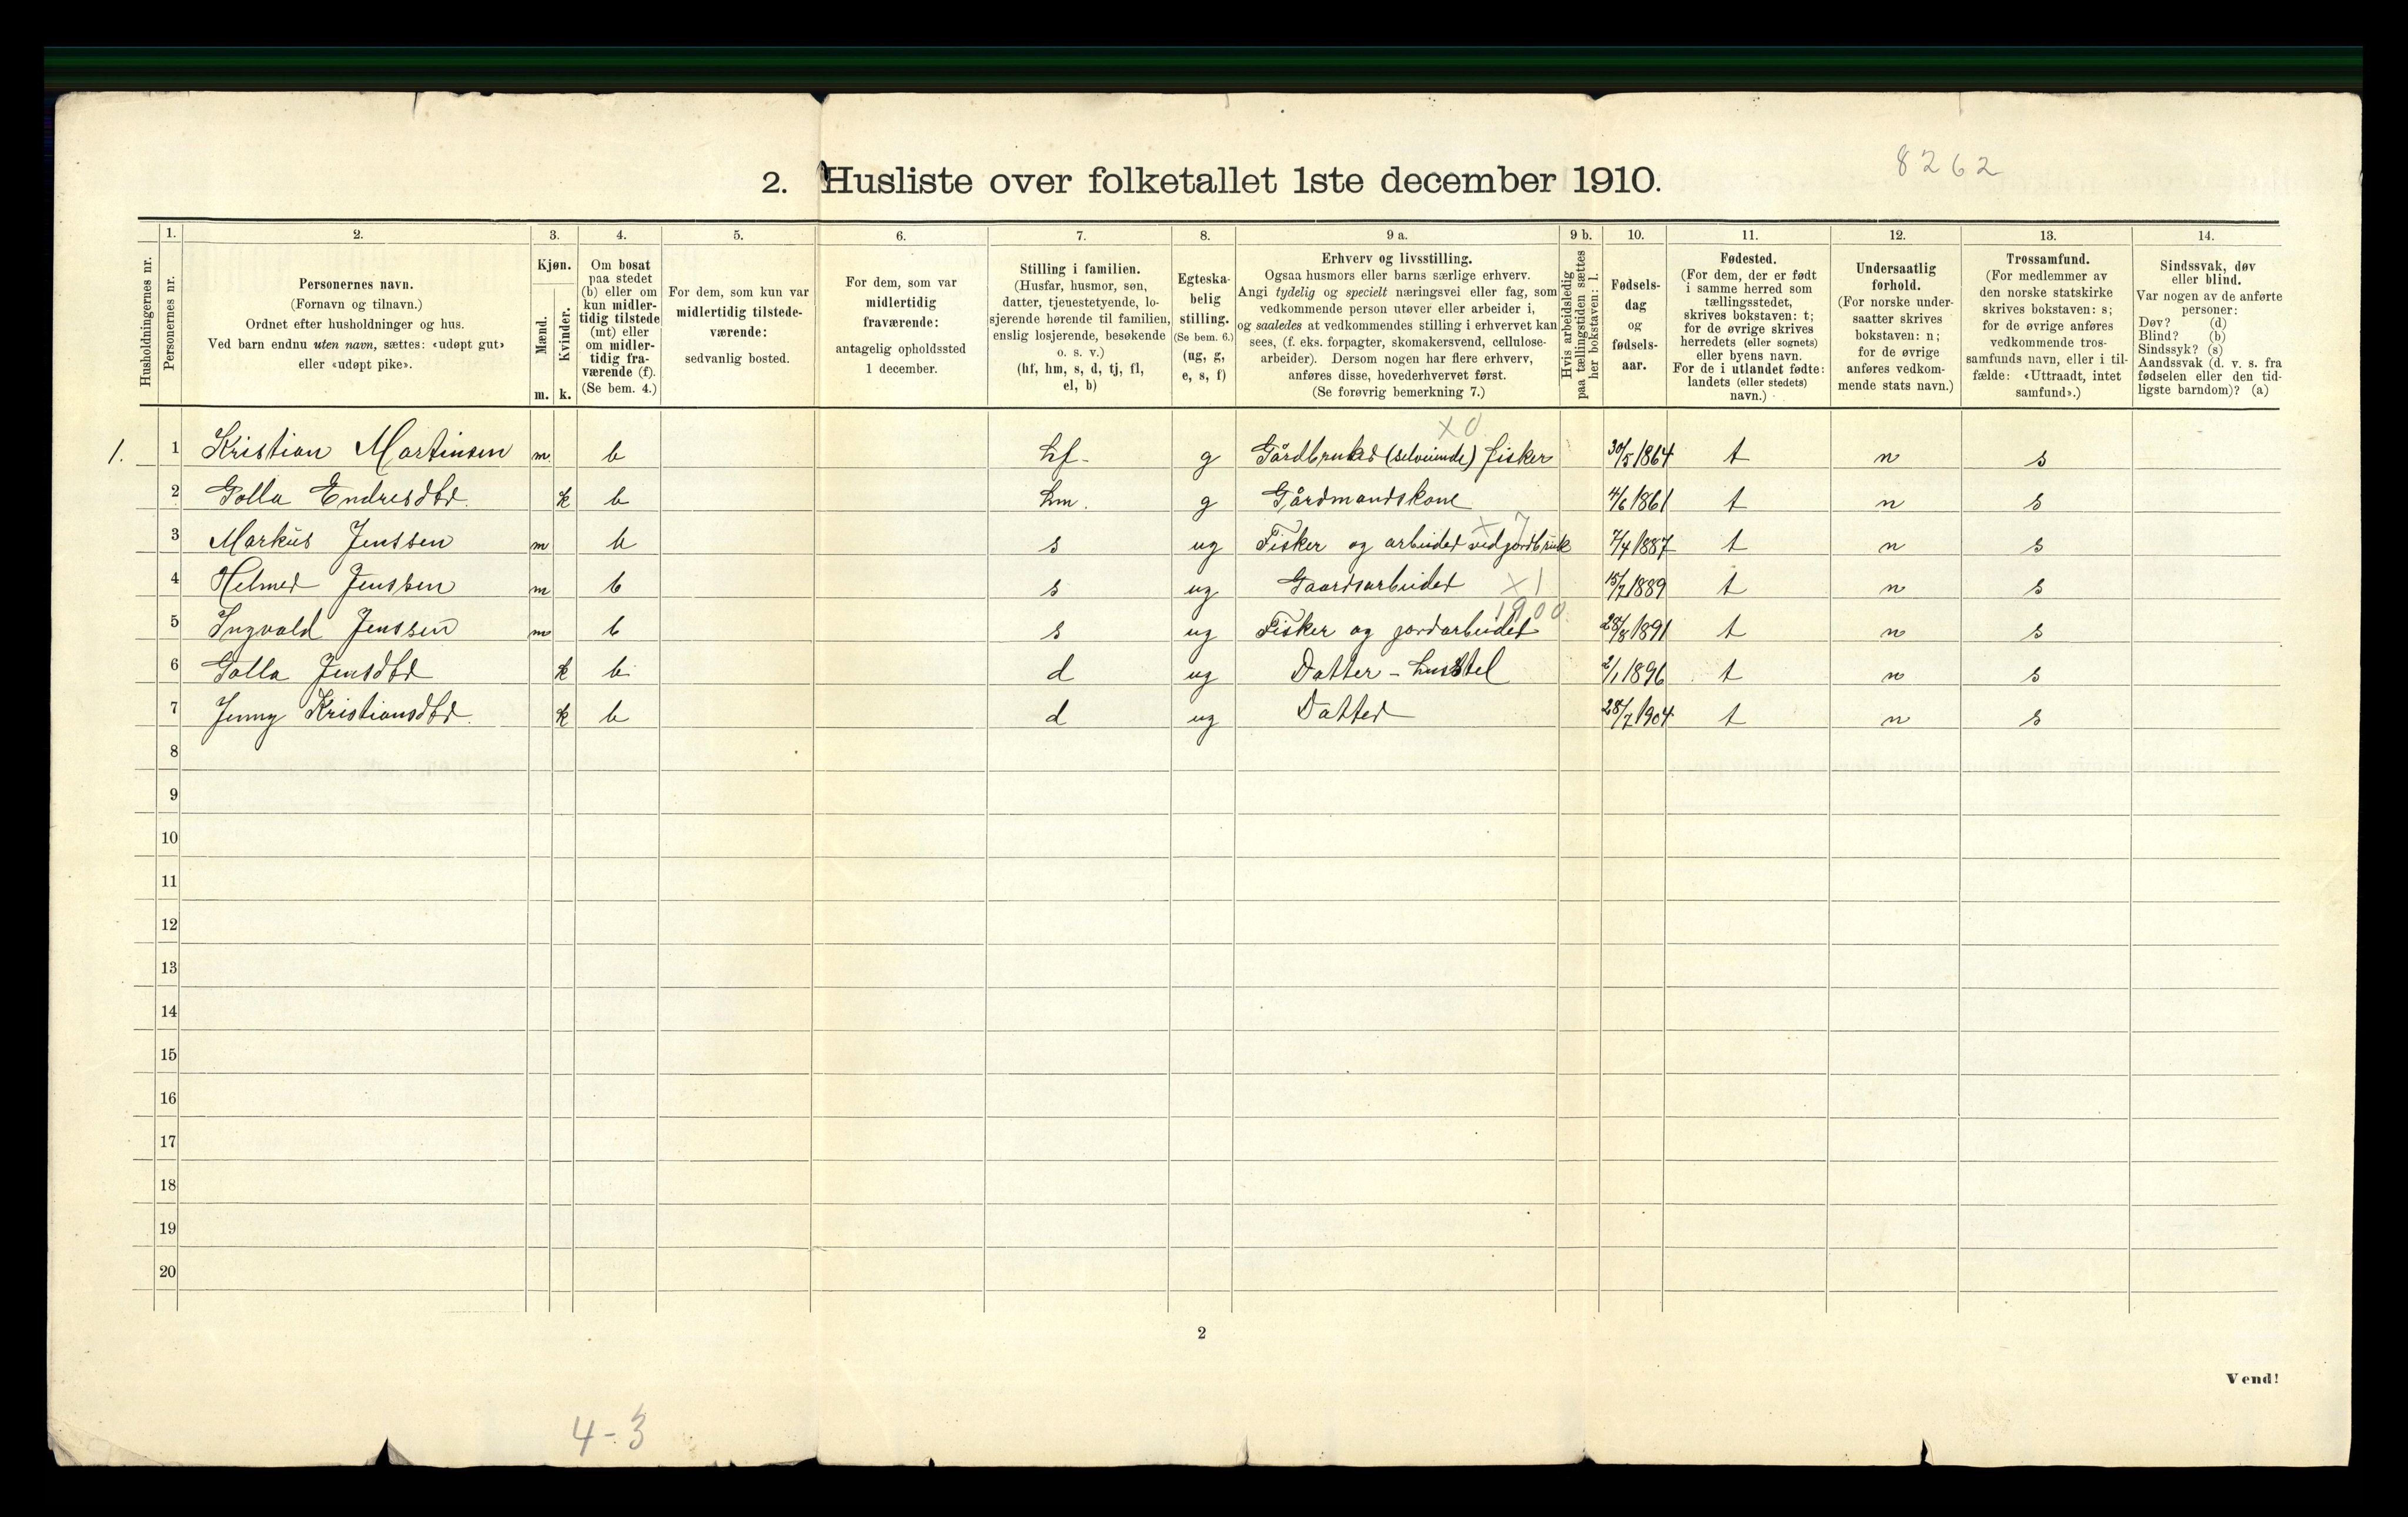 8262
2. Husliste over folketallet 1ste december 1910.
Husholdningernes nr.
1.
Personernes nr.
2.
Personernes navn.
(Fornavn og tilnavn.)
Ordnet efter husholdninger og hus.
Ved barn endnu uten navn, sættes: «udøpt gut»
eller «udøpt pike».
3.
Kjøn.
Mænd. Kvinder.
m. k.
4.
Om bosat
paa stedet
(b) eller om
kun midler-
tidig tilstede
(mt) eller
om midler-
tidig fra-
værende (f).
(Se bem. 4.)
5.
For dem, som kun var
midlertidig tilstede-
værende:
sedvanlig bosted.
6.
For dem, som var
midlertidig
fraværende:
antagelig opholdssted
1 december.
7.
Stilling i familien.
(Husfar, husmor, søn,
datter, tjenestetyende, lo-
sjerende hørende til familien,
enslig losjerende, besøkende
o. s. v.)
(hf, hm, s, d, tj, fl,
el, b)
8.
Egteska-
belig
stilling.
(Se bem. 6.)
(ug, g,
e, s, f)
9 a.
Erhverv og livsstilling.
Ogsaa husmors eller barns særlige erhverv.
Angi tydelig og specielt næringsvei eller fag, som
vedkommende person utøver eller arbeider i,
og saaledes at vedkommendes stilling i erhvervet kan
sees, (f. eks. forpagter, skomakersvend, cellulose-
arbeider). Dersom nogen har flere erhverv,
anføres disse, hovederhvervet først.
(Se forøvrig bemerkning 7.)
9 b.
Hvis arbeidsledig
paa tællingstiden sættes
her bokstaven: l.
10.
Fødsels-
dag
og
fødsels-
aar.
11.
Fødested.
(For dem, der er født
i samme herred som
tællingsstedet,
skrives bokstaven: t;
for de øvrige skrives
herredets (eller sognets)
eller byens navn.
For de i utlandet fødte:
landets (eller stedets)
navn.)
12.
Undersaatlig
forhold.
(For norske under-
saatter skrives
bokstaven: n;
for de øvrige
anføres vedkom-
mende stats navn.)
13.
Trossamfund.
(For medlemmer av
den norske statskirke
skrives bokstaven: s;
for de øvrige anføres
vedkommende tros-
samfunds navn, eller i til-
fælde: «Uttraadt, intet
samfund».)
14.
Sindssvak, døv
eller blind.
Var nogen av de anførte
personer:
Døv? (d)
Blind? (b)
Sindssyk? (s)
Aandssvak (d. v. s. fra
fødselen eller den tid-
ligste barndom)? (a)
x0
1. 1 Kristian Martinsen m. b hf. g Gårdbruker (selveiende) fisker 30/5 1864 t n s
2 Golla Endresdtr. k b hm. g Gårdmandskone 4/6 1861 t n s
x 7
3 Markus Jenssen m b s ug Fisker og arbeider ved jordbruk 7/4 1887 t n s
4 Helmer Jenssen m b s ug Gaardsarbeider x1 15/7 1889 t n s
1900
5 Ingvald Jenssen m b s ug Fisker og jordarbeider 28/8 1891 t n s
6 Golla Jensdtr k b d ug Datter - husstel 2/1 1896 t n s
7 Jenny Kristiansdtr. k b d ug Datter 28/7 1904 t n s
8
9
10
11
12
13
14
15
16
17
18
19
20
2
Vend!
4-3